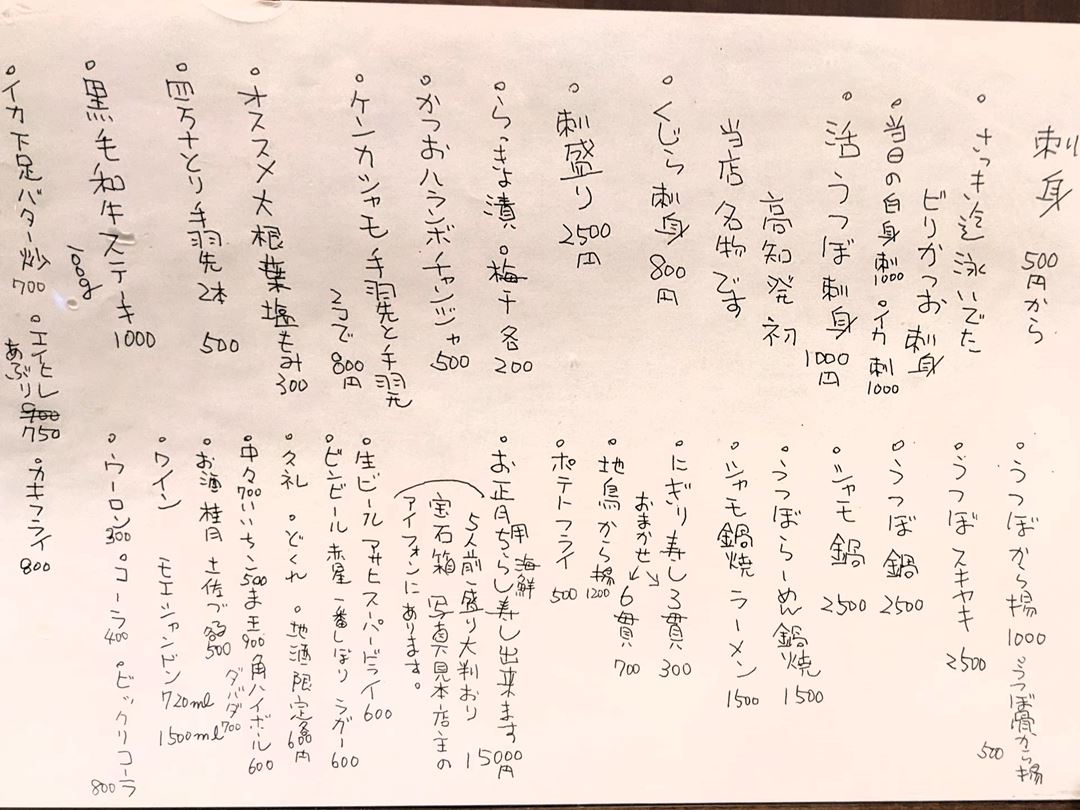 刺身 500円から
。さっき迄泳いでた
ビリかつお刺身
。当日の白身刺1000。イカ刺1000
。活うつぼ刺身1000円
高知発初
当店名物です
。くじら刺身800円
。刺盛り2500円
。らっきょ漬。梅干各200
。かつおハランボチャンジャ500
。ケンカシャモ手羽先と手羽元
2コで800円
。オススメ大根葉塩もみ300
。四万十とり手羽先2本500
。黒毛和牛ステーキ1000
100g
。イカ下足バター炒700。エイヒレあぶり750。カキフライ800
。うつぼから揚1000。うつぼ骨から揚500
。うつぼスキヤキ2500
。うつぼ鍋2500
。シャモ鍋2500
。うつぼらーめん鍋焼1500
。シャモ鍋焼ラーメン1500
。にぎり寿し3貫300
おまかせ 6貫700
。地鳥から揚1200
。ポテトフライ500
。お正月用海鮮ちらし寿し出来ます15000円
5人前盛り大判おり
宝石箱 写真見本店主の
アイフォンにあります。
。生ビールアサヒスーパードライ600
。ビンビール赤星一番しぼりラガー600
。久礼。どくれ。地酒限定各600円
。中々700いいちこ500ま王900角ハイボール600
ダバダ700
。お酒桂月土佐づる各500
。ワイン モエシャンドン720ml
1500ml
。ウーロン300。コーラ400。ビックリコーラ800